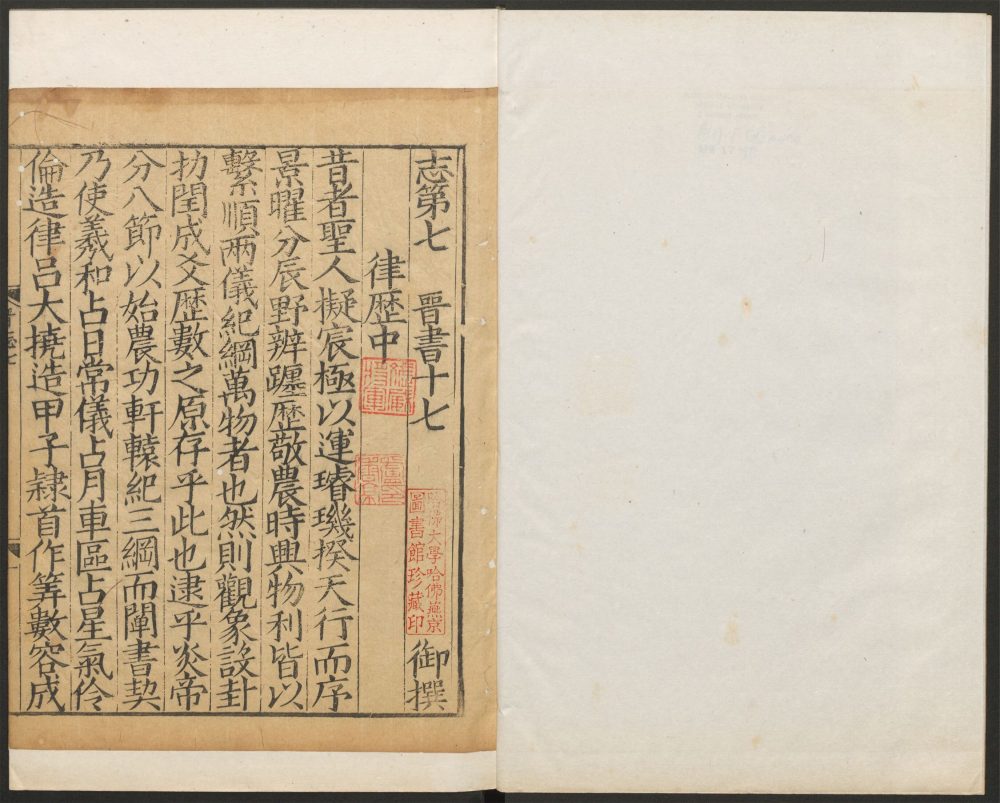 志第七 晉書十七 御撰
律歷中
昔者聖人擬宸極以運璿璣揆天行而序
景曜分辰野辨躔歷敬農時興物利皆以
繫順兩儀紀綱萬物者也然則觀象設卦
扐閏成爻歷數之原存乎此也逮乎炎帝
分八節以始農功軒轅紀三綱而闡書契
乃使羲和占日常儀占月車區占星氣伶
倫造律呂大撓造甲子隸首作筭數容成
哈佛大學哈佛燕京
圖書館珍藏印